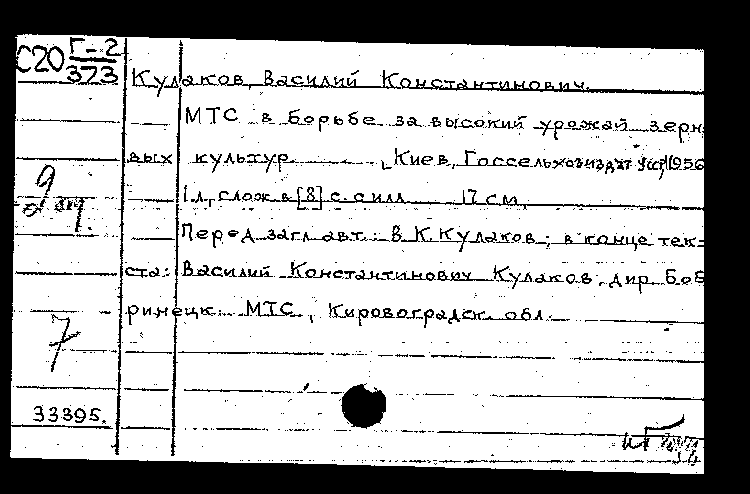 С20 Г-2
373
Кулаков, Василий Константинович.
МТС в борьбе за высокий урожай зерн
вых культур. Киев, Госсельхозиздат УССР, 1956
1 л., слож. в [8] с. с илл. 17 см.
Перед загл. авт.: В. К. Кулаков; в конце тек-
ста: Василий Константинович Кулаков, дир. Боб
ринецк. МТС, Кировоградск. обл.
9
7
33395.